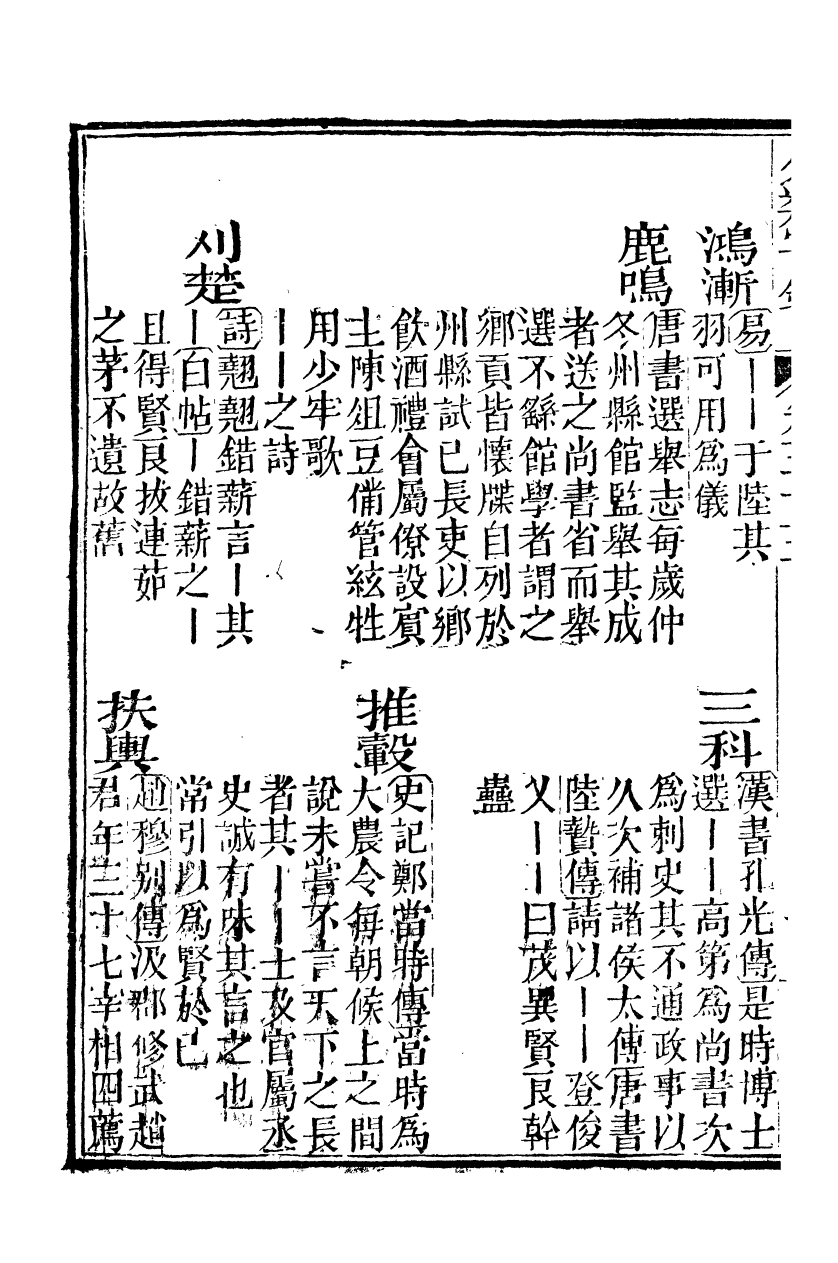 鴻漸
易｜｜于陸其
羽可用爲儀
鹿鳴
唐書選舉志每歲仲
冬州縣館監舉其成
者送之尚書省而舉
選不繇館學者謂之
鄉貢皆懷牒自列於
州縣試已長吏以鄉
飲酒禮會屬僚設賓
主陳俎豆備管絃牲
用少牢歌
｜｜之詩
刈楚
詩翹翹錯薪言｜其
｜白帖｜錯薪之｜
且得賢良拔連茹
之茅不遺故舊
三科
漢書孔光傳是時博士
選｜｜高第爲尚書次
爲刺史其不通政事以
久次補諸侯太傅唐書
陸贄傳請以｜｜登俊
乂｜｜曰茂異賢良幹
蠱
推轂
史記鄭當時傳當時爲
大農令每朝候上之間
說未嘗不言天下之長
者其｜｜士及官屬丞
史誠有味其言之也
常引以爲賢於己
扶輿
趙穆別傳汲郡修武趙
君年三十七宰相四薦